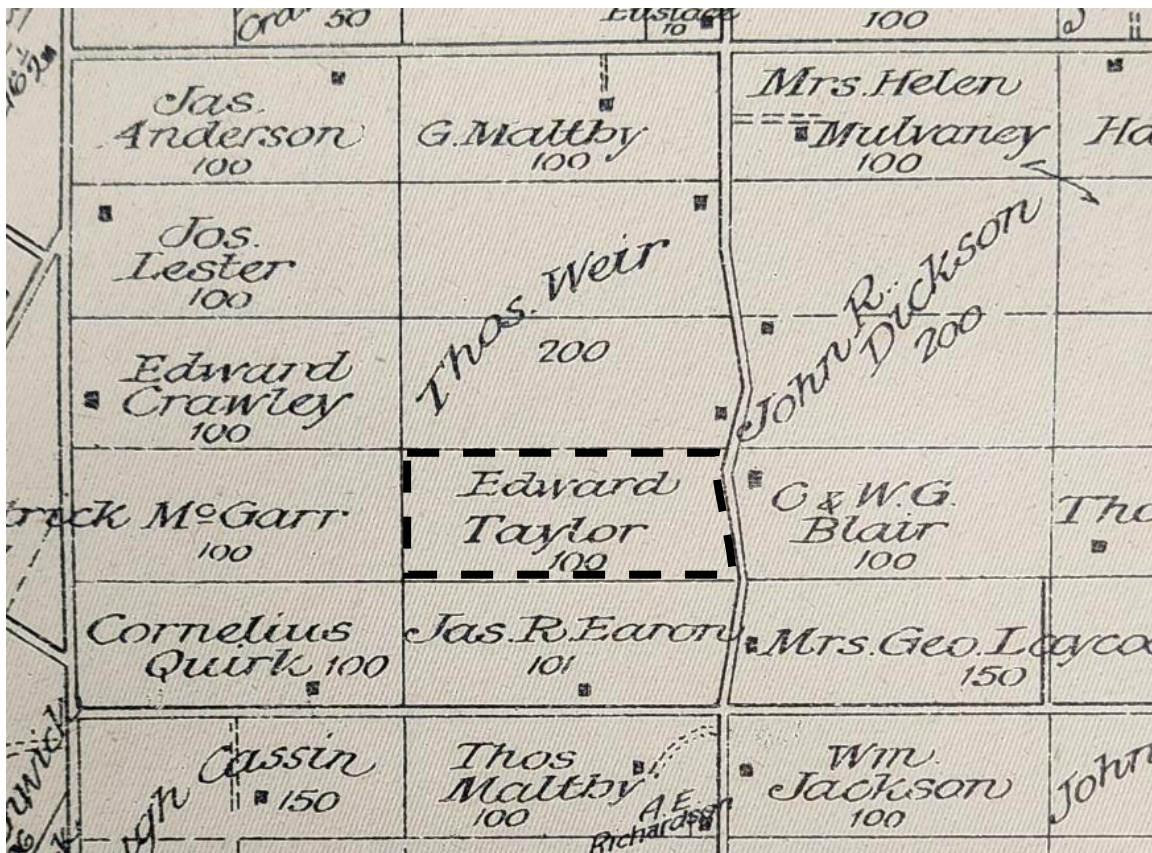 50
Eustace
10
100
16½m
Jas.
Anderson
100
G. Maltby
100
Mrs. Helen
Mulvaney
100
Ha
Jos.
Lester
100
Thos. Weir
200
John R.
Dickson
200
Edward
Crawley
100
trick McGarr
100
Edward
Taylor
100
C & W.G.
Blair
100
Tho
Cornelius
Quirk 100
Jas. R. Earon
101
Mrs. Geo. Laycoc
150
Cassin
150
Thos
Maltby
100
A.E.
Richardson
Wm.
Jackson
100
John